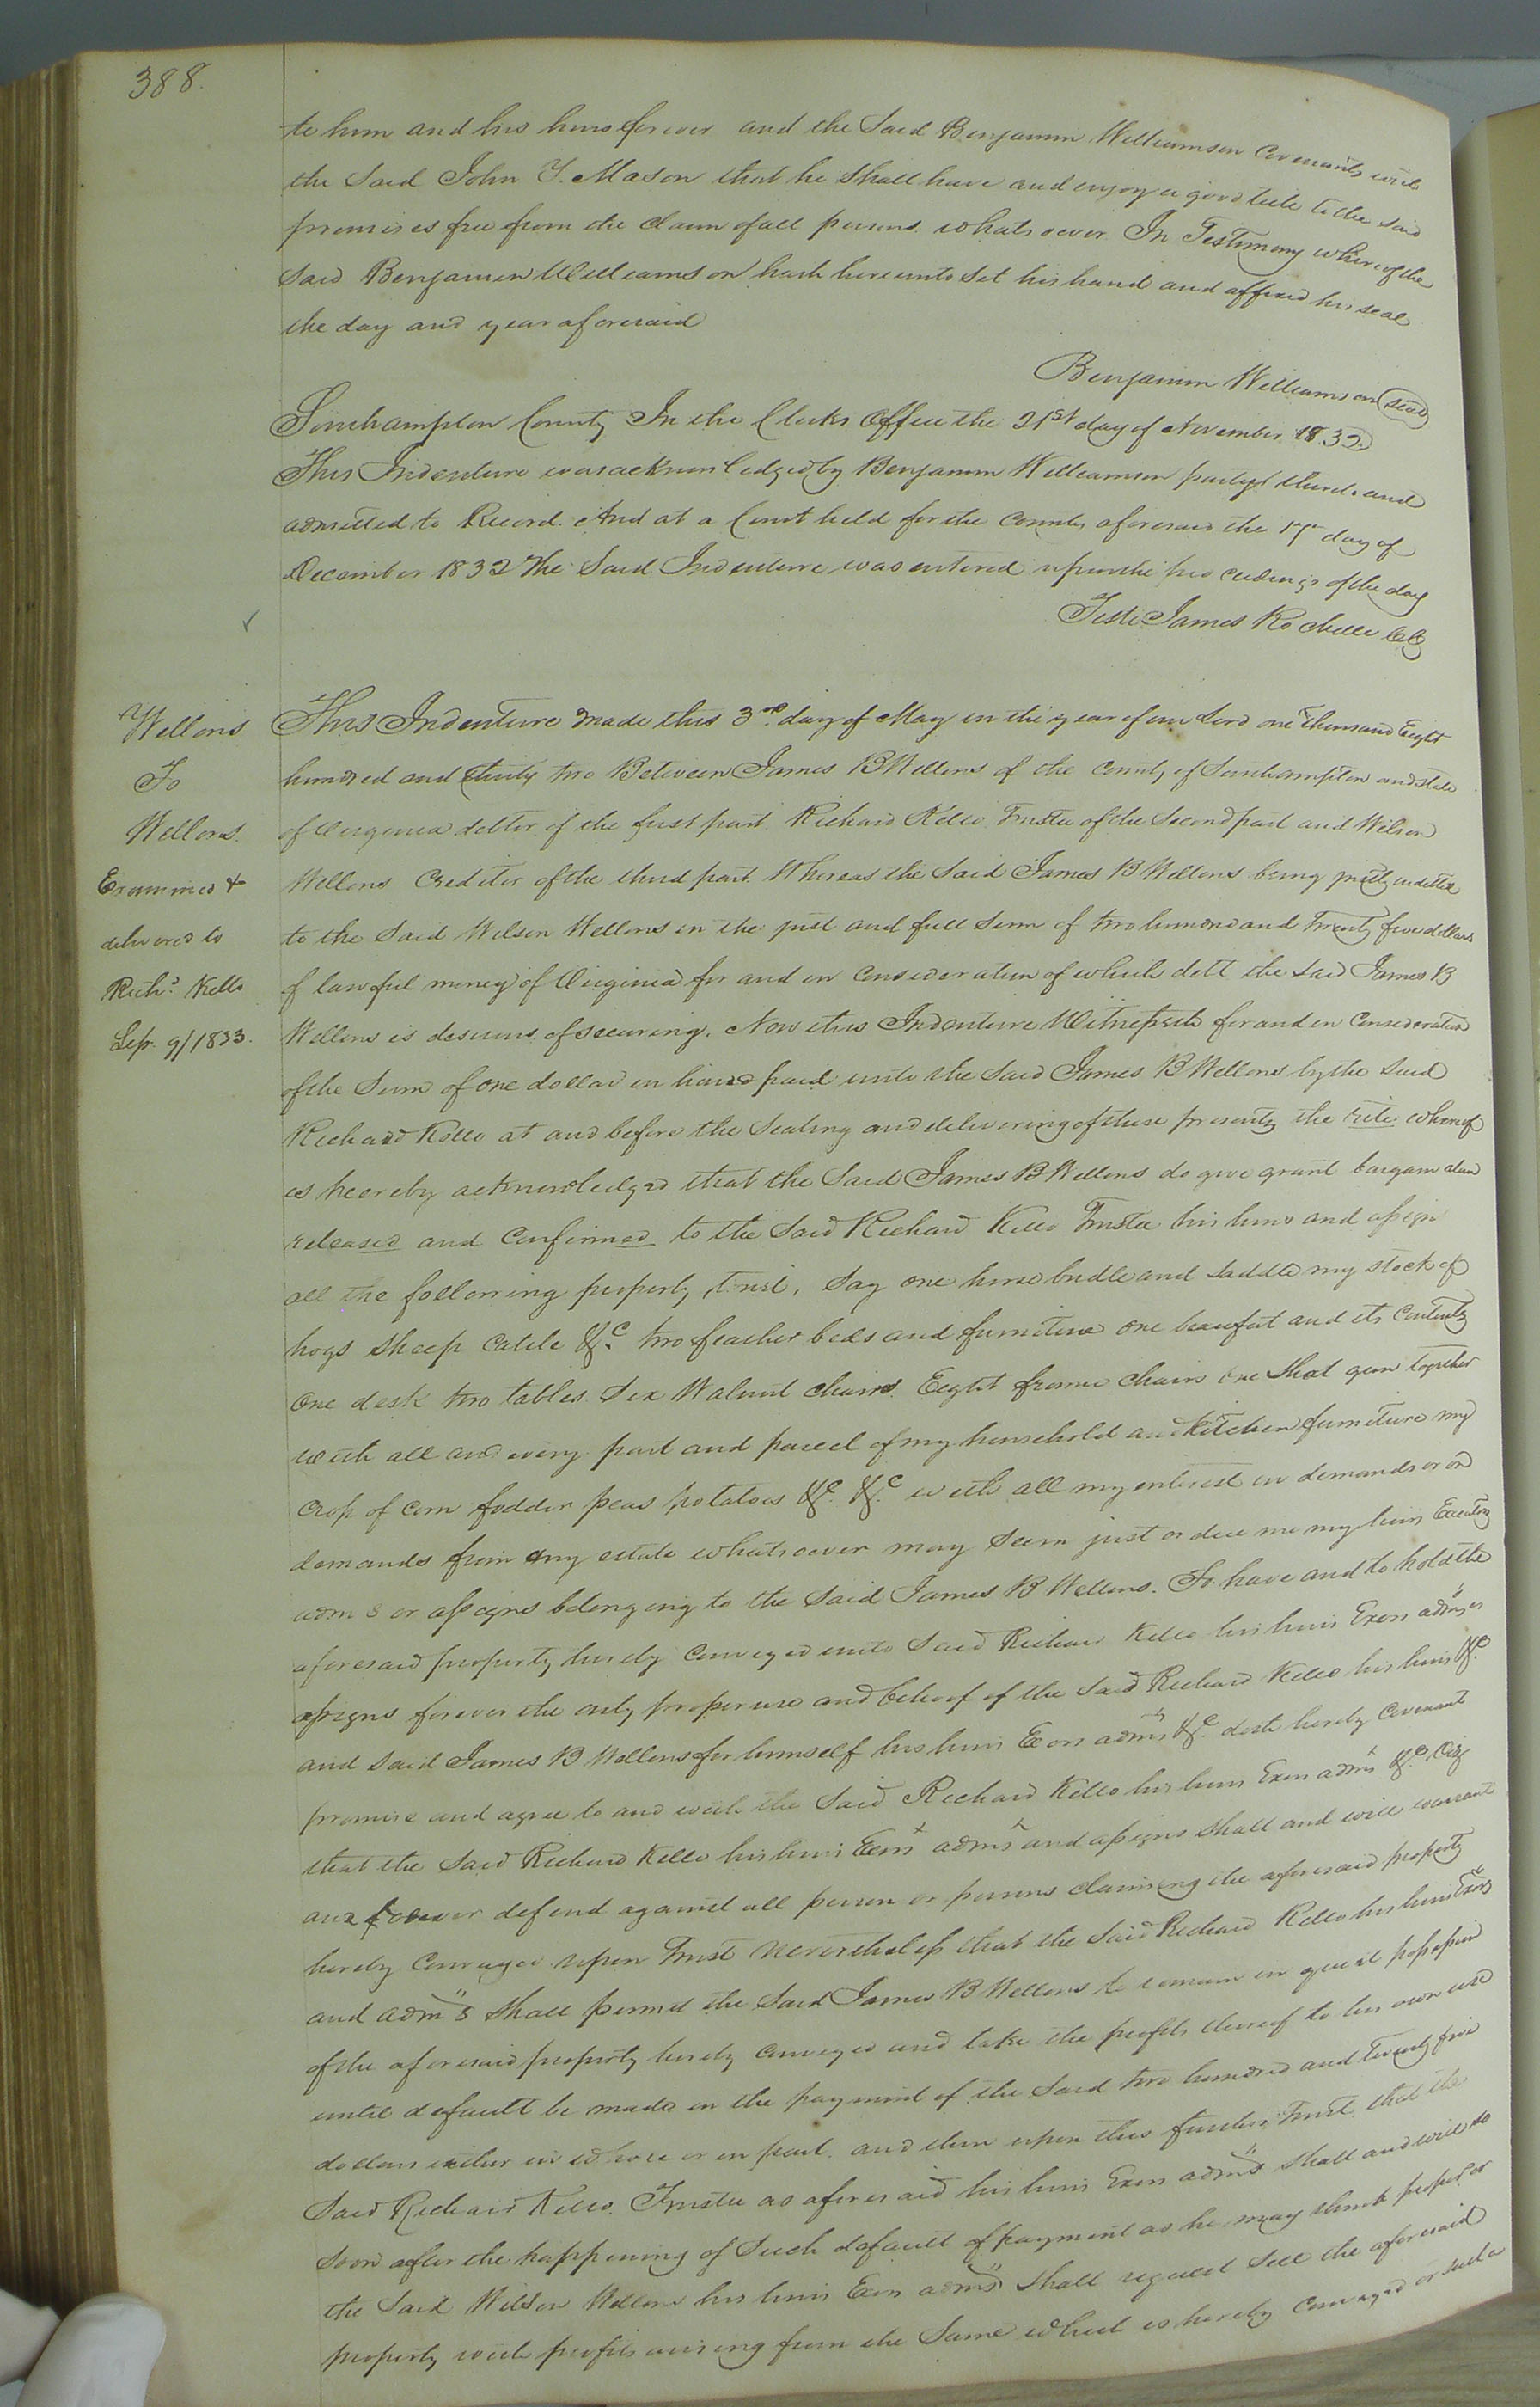 388.
to him and his heirs forever and the Said Benjamin Williamson Covenants with
the Said John Y. Mason that he Shall have and enjoy a good title to the said
premises free from the Claim of all persons whatsoever. In Testimony whereof the
Said Benjamin Williamson hath hereunto Set his hand and affixed his seal
the day and year aforesaid
Benjamin Williamson (seal)
Southampton County In the Clerks Office the 21st day of November 1832
This Indenture was acknowledged by Benjamin Williamson party thereto and
admitted to Record. And at a Court held for the County aforesaid the 17th day of
December 1832 The Said Indenture was entered upon the proceedings of the day
Teste James Rochelle CC
Wellons
To
Wellons.
Examined &
delivered to
Richd. Kello
Sep. 9/1833.
This Indenture made this 3rd. day of May in the year of our Lord one Thousand Eight
hundred and thirty two Between James B Wellons of the County of Southampton and state
of Virginia debtor of the first part Richard Kello Trustee of the Second part and Wilson
Wellons Creditor of the third part. Whereas the Said James B Wellons being justly indebted
to the Said Wilson Wellons in the just and full Sum of two hundred and Twenty five dollars
of lawful money of Virginia for and in Consideration of which debt the Said James B
Wellons is desirous of securing. Now this Indenture Witnesseth for and in Consideration
of the Sum of one dollar in hand paid unto the Said James B Wellons by the Said
Richard Kello at and before the Sealing and delivering of these presents, the rite whereof
is heereby acknowledged that the Said James B Wellons do give grant bargain
released and Confirmed to the Said Richard Kello Trustee his heirs and assign
all the following property, (towit, Say one horse bridle and Saddle my stock of
hogs sheep Cattle &c. two feather beds and furniture one beaufat and its Contents
One desk two tables Six Walnut chairs Eight frame Chairs one Shot gun together
with all and every part and parcel of my household and Kitchen furniture my
Crop of corn fodder peas potatoes &c. &c with all my interest in demands or on
demands from any estate whatsoever may Seem just or due me my heirs Executors
adms or assigns belonging to the Said James B Wellons. To have and to hold the
aforesaid property hereby Conveyed unto Said Richard Kello his heirs Exors adms or
assigns forever the only proper use and behoof of the Said Richard Kello his heirs &c.
and Said James B Wellons for himself his heirs Exors adms &c. doth hereby Covenant
promise and agree to and with the Said Richard Kello his heirs Exors adms &c. Viz
that the Said Richard Kello his heirs Exors adms and assigns Shall and will warrant
and forever defend against all person or persons claiming the aforesaid property
hereby Conveyed upon Trust nevertheless that the Said Richard Kello his heirs Exors
and adms Shall permit the Said James B Wellons to remain in quiet possession
of the aforesaid property hereby Conveyed and take the profits thereof to his own use
until default be made in the payment of the Said two hundred and Twenty five
dollars either in whole or in part. and then upon this further Trust that the
Said Richard Kello Trustee as aforesaid his heirs Exors adms Shall and will so
Soon after the happening of Such default of payment as he may think proper or
the Said Wilson Wellons his heirs Exors adms Shall request Sell the aforesaid
property with profits arising from the Same which is hereby Conveyed or such